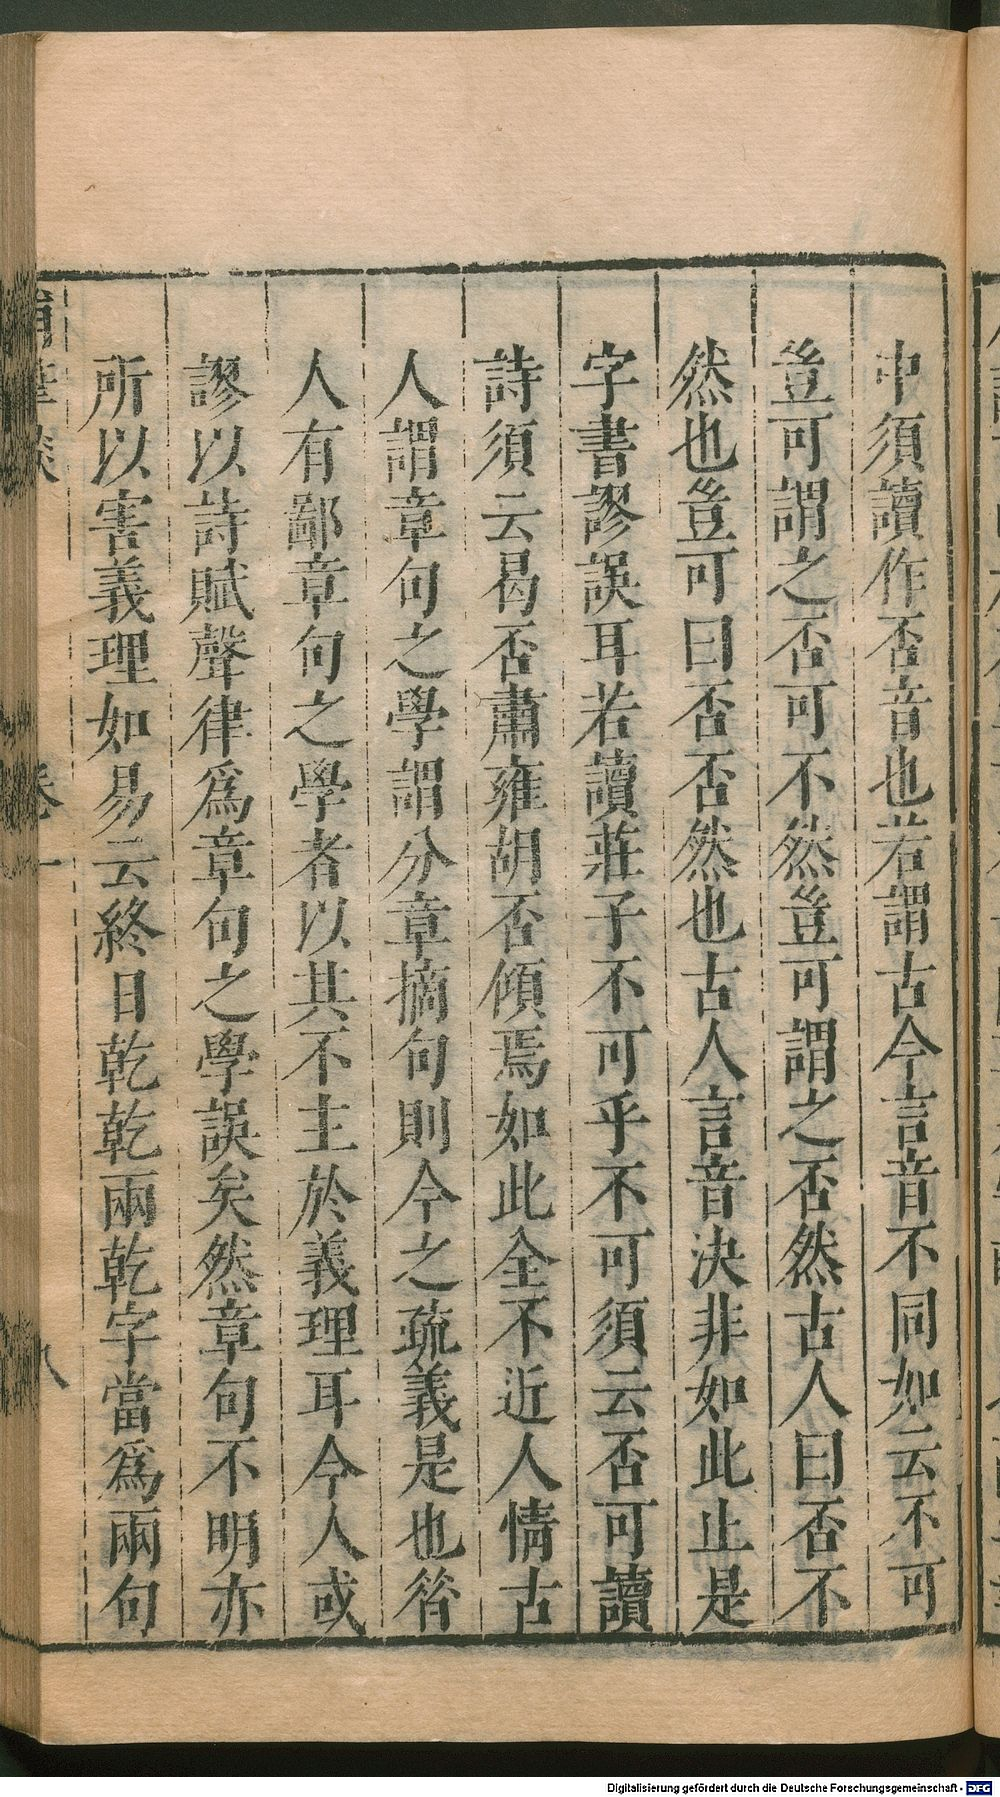 中須讀作否音也若謂古今言音不同如云不可
豈可謂之否可不然豈可謂之否然古人曰否不
然也豈可曰否否然也古人言音決非如此止是
字書謬誤耳若讀莊子不可乎不可須云否可讀
詩須云曷否肅雍胡否傾焉如此全不近人情古
人謂章句之學謂分章摘句則今之疏義是也昝
人有鄙章句之學者以其不主於義理耳今人或
謬以詩賦聲律為章句之學誤矣然章句不明亦
所以害義理如易云終日乾乾兩乾字當為兩句
卷一
八
Digitalisierung gefördert durch die Deutsche Forschungsgemeinschaft - DFG